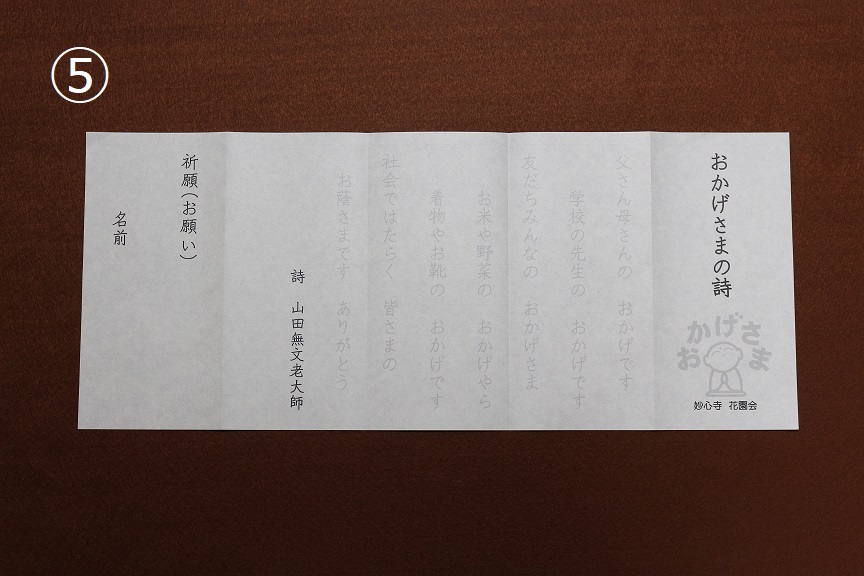 ⑤
おかげさまの詩
おかげさま
妙心寺 花園会
父さん母さんの おかげです
学校の先生の おかげです
友だちみんなの おかげさま
お米や野菜の おかげやら
着物やお靴の おかげです
社会ではたらく 皆さまの
お蔭さまです ありがとう
詩 山田無文老大師
祈願(お願い)
名前